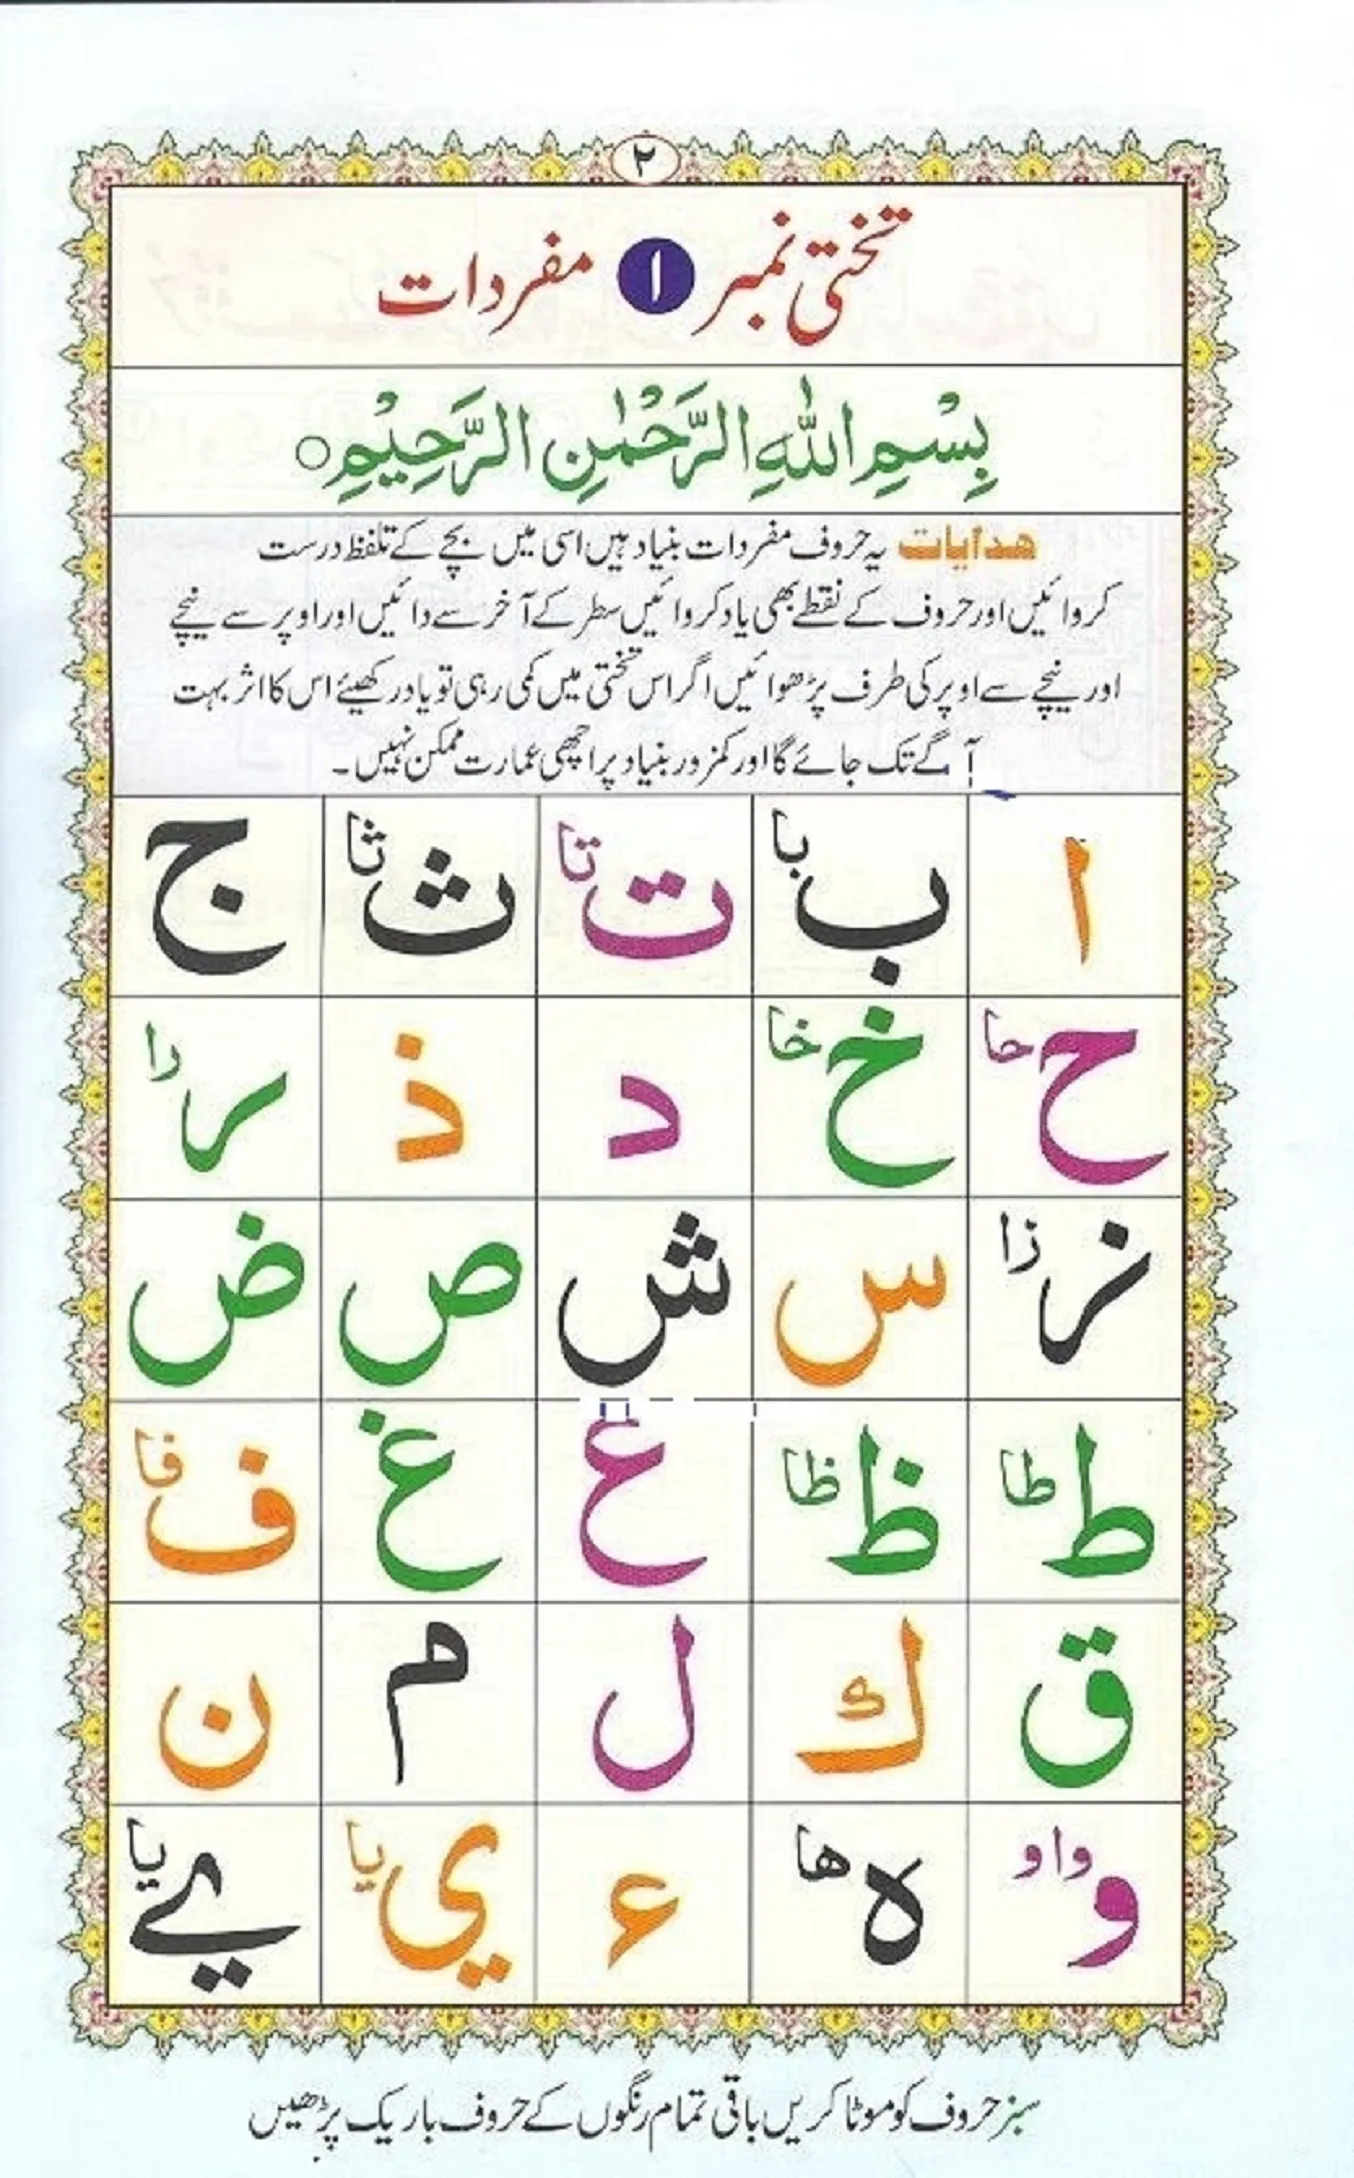 ٢
تختی نمبر ۱ مفردات
بِسْمِ اللّٰهِ الرَّحْمٰنِ الرَّحِیْمِ ○
ھدایات یہ حروف مفردات بنیاد ہیں اسی میں بچے کے تلفظ درست
کروائیں اور حروف کے نقطے بھی یاد کروائیں سطر کے آخر سے دائیں اور اوپر سے نیچے
اور نیچے سے اوپر کی طرف پڑھوائیں اگر اس تختی میں کمی رہی تو یاد رکھیئے اس کا اثر بہت
آگے تک جائے گا اور کمزور بنیاد پر اچھی عمارت ممکن نہیں۔
ا ب با ت تا ث ثا ج
ح حا خ خا د ذ ر را
ز زا س ش ص ض
ط طا ظ ظا ع غ ف فا
ق ك ل م ن
و واو ہ ھا ء ي یا ے یا
سبز حروف کو موٹا کریں باقی تمام رنگوں کے حروف باریک پڑھیں